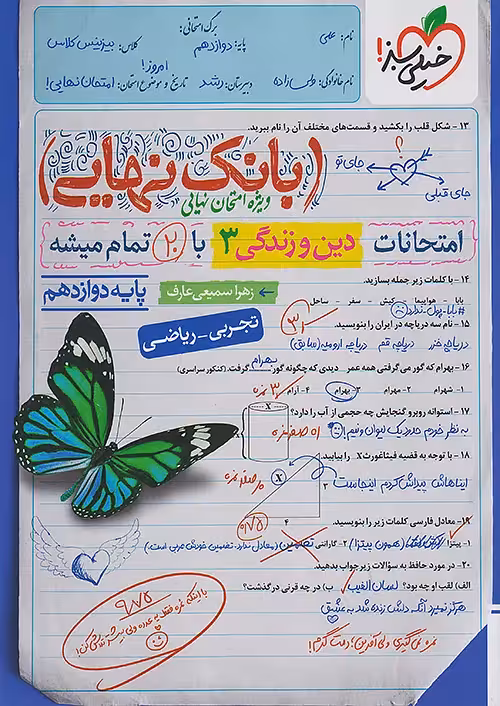 برگ امتحانی:
نام: علی
پایه: دوازدهم
کلاس: بیزینس کلاس
امروز!
نام خانوادگی:
دبیرستان: رشد
تاریخ و موضوع امتحان: امتحان نهایی!
خیلی سبز!
۱۳- شکل قلب را بکشید و قسمت‌های مختلف آن را نام ببرید.
؟
جای تو
جای قبلی
(بانک نهایی)
ویژه امتحان نهایی
امتحانات دین و زندگی ۳ با ۲۰ تمام میشه
۱۴- با کلمات زیر جمله بسازید.
زهرا سمیعی عارف
پایه دوازدهم
بابا - هواپیما - کیش - سفر - ساحل
#بابا_پول_ندارد
تجربی - ریاضی
۱۵- نام سه دریاچه در ایران را بنویسید.
دریاچه خزر دریاچه قم دریاچه ارومیه (سابق)
۱۶- بهرام که گور می‌گرفتی همه عمر دیدی که چگونه گور بهرام گرفت. (کنکور سراسری)
۱- شهرام ۲- مهرام ۳- بهرام ۴- آرام
۱۷- استوانه روبرو گنجایش چه حجمی از آب را دارد؟
X
به نظر خودم حدود یک لیوان و نیم!
۱۸- با توجه به قضیه فیثاغورث X را بیابید.
X
۳
۴
ایناهاش پیداش کردم اینجاست
۱۹- معادل فارسی کلمات زیر را بنویسید.
۱- پیتزا (همون پیتزا) ۲- گارانتی تضمین (معادل ندارد، تضمین خودش عربی است.)
۲۰- در مورد حافظ به سؤالات زیر جواب بدهید.
الف) لقب او چه بود؟ لسان الغیب ب) در چه قرنی درگذشت؟
هرگز نمیرد آنکه دلش زنده شد به عشق
۹/۷۵
نمره نمی‌گیری ولی آفرین؛ دمت گرم!